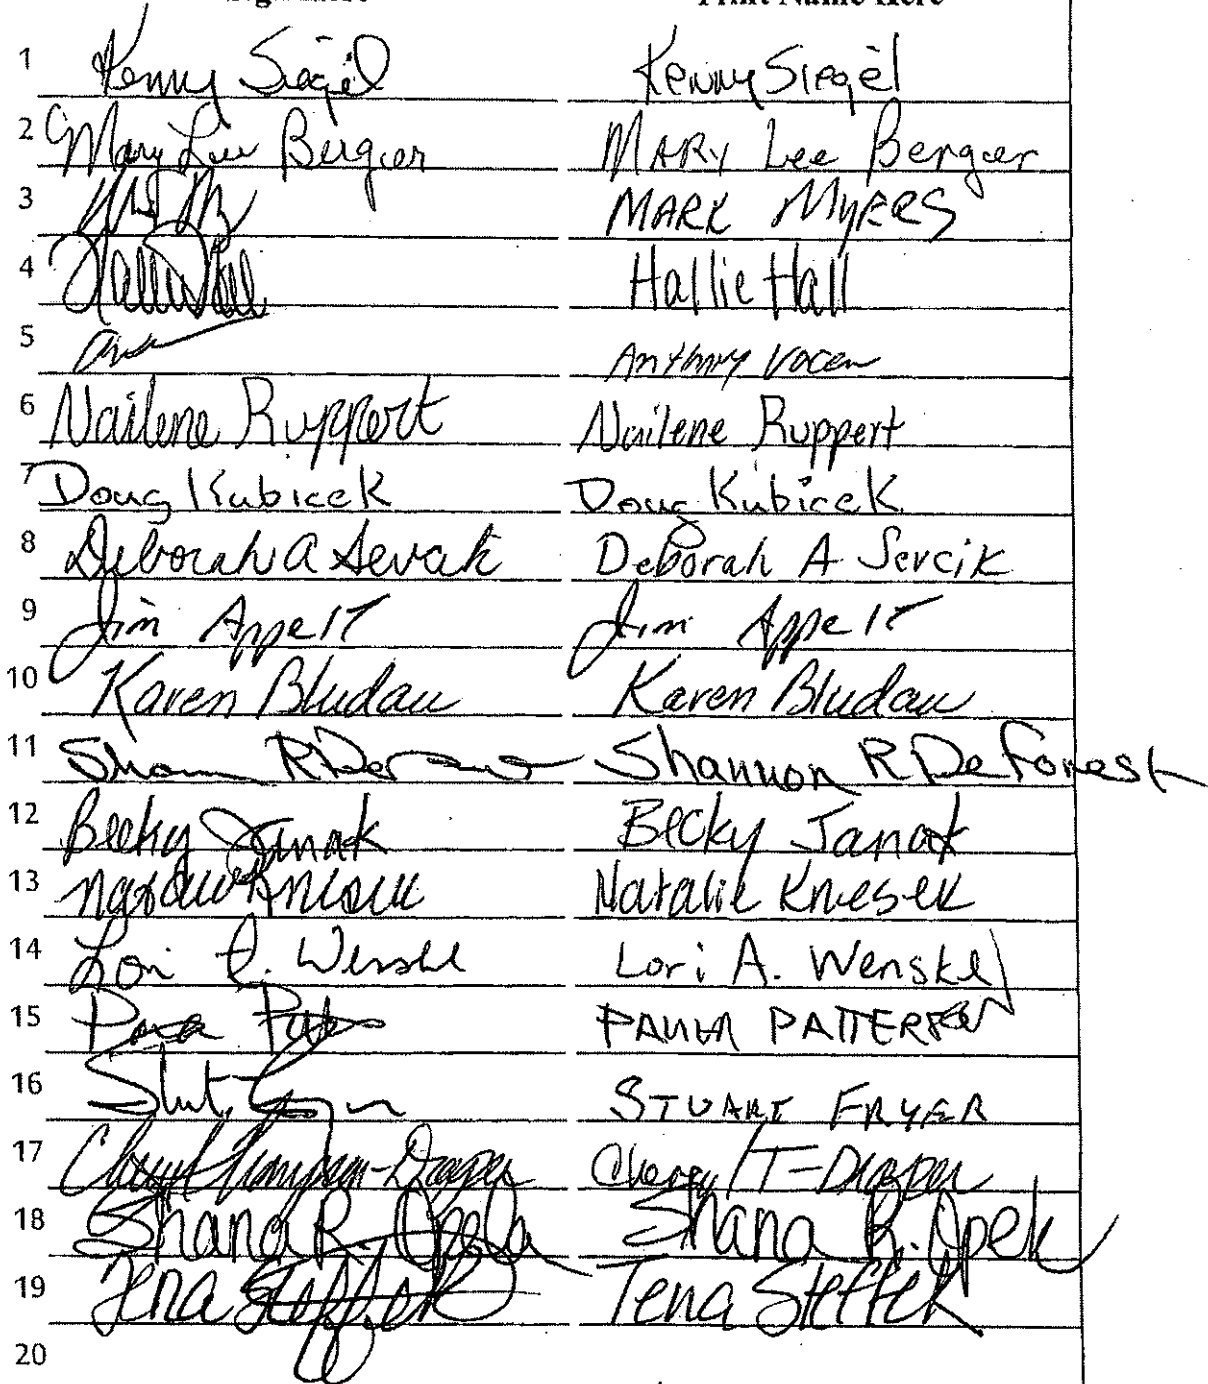 Print Name Here
1 Kenny Siegel Kenny Siegel
2 Mary Lee Berger MARY Lee Berger
3 MARK MYERS
4 Hallie Hall Hallie Hall
5 Anthony
6 Nailene Ruppert Nailene Ruppert
7 Doug Kubicek Doug Kubicek
8 Deborah A Sevcik Deborah A Sevcik
9 Jim Appelt Jim Appelt
10 Karen Bludau Karen Bludau
11 Shannon R DeForest
12 Becky Janak Becky Janak
13 Natalie Knesek Natalie Knesek
14 Lori A. Wenske Lori A. Wenske
15 PAULA PATTERSON
16 STUART FRYER
17 Cheryl Thompson-Draper Cheryl T-Draper
18 Shana R. Opela Shana R. Opela
19 Tena Steffek Tena Steffek
20